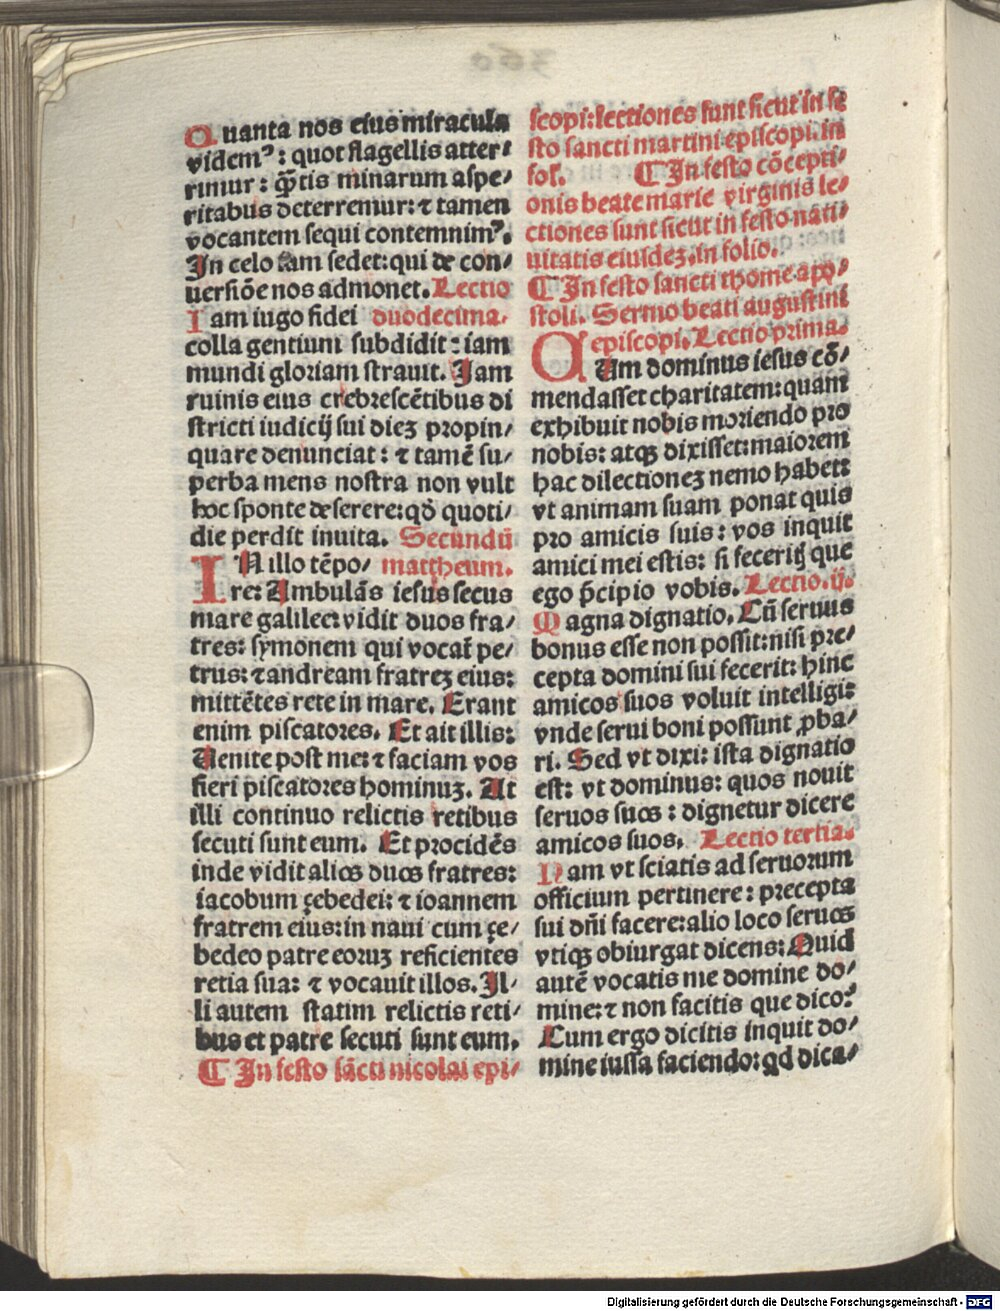 Quanta nos eius miracula
videmꝰ: quot flagellis atter/
rimur: qͣ̄tis minarum aspe/
ritabus deterremur: ⁊ tamen
vocantem sequi contemnimꝰ.
In celo iam sedet: qui de con/
uersiōe nos admonet. Lectio
Iam iugo fidei duodecima.
colla gentium subdidit: iam
mundi gloriam strauit. Jam
ruinis eius crebrescētibus di
stricti iudicij sui dieʒ propin/
quare denunciat: ⁊ tamē su/
perba mens nostra non vult
hoc sponte deserere: qď quoti/
die perdit inuita. Secundū
IN illo tēpo/ mattheum.
re: Ambulās iesus secus
mare galilee: vidit duos fra/
tres: symonem qui vocat̄ pe/
trus: ⁊ andream fratreʒ eius:
mittētes rete in mare. Erant
enim piscatores. Et ait illis:
Uenite post me: ⁊ faciam vos
fieri piscatores hominuʒ. At
illi continuo relictis retibus
secuti sunt eum. Et procidēs
inde vidit alios duos fratres:
iacobum çebedei: ⁊ ioannem
fratrem eius: in naui cum çe/
bedeo patre eoruʒ reficientes
retia sua: ⁊ vocauit illos. Il/
li autem statim relictis reti/
bus et patre secuti sunt eum.
¶ In festo sācti nicolai epi/
scopi: lectiones sunt sicut in fe
sto sancti martini episcopi. in
fol. ¶ In festo cōcepti/
onis beate marie virginis le/
ctiones sunt sicut in festo nati/
uitatis eiusdeʒ. in folio.
¶ In festo sancti thome apo/
stoli. Sermo beati augustini
episcopi. Lectio prima.
CUm dominus iesus cō/
mendasset charitatem: quam
exhibuit nobis moriendo pro
nobis: atqʒ dixisset: maiorem
hac dilectioneʒ nemo habet:
vt animam suam ponat quis
pro amicis suis: vos inquit
amici mei estis: si feceritꝭ que
ego p̄cipio vobis. Lectio. ij.
Magna dignatio. Cū seruus
bonus esse non possit: nisi pre/
cepta domini sui fecerit: hinc
amicos suos voluit intelligi:
vnde serui boni possunt ꝓba/
ri. Sed vt dixi: ista dignatio
est: vt dominus: quos nouit
seruos suos: dignetur dicere
amicos suos. Lectio tertia.
Nam vt sciatis ad seruorum
officium pertinere: precepta
sui dn̄i facere: alio loco seruos
vtiqʒ obiurgat dicens: Quid
autē vocatis me domine do/
mine: ⁊ non facitis que dico?
Cum ergo dicitis inquit do/
mine iussa faciendo: qď dica/
Digitalisierung gefördert durch die Deutsche Forschungsgemeinschaft - DFG